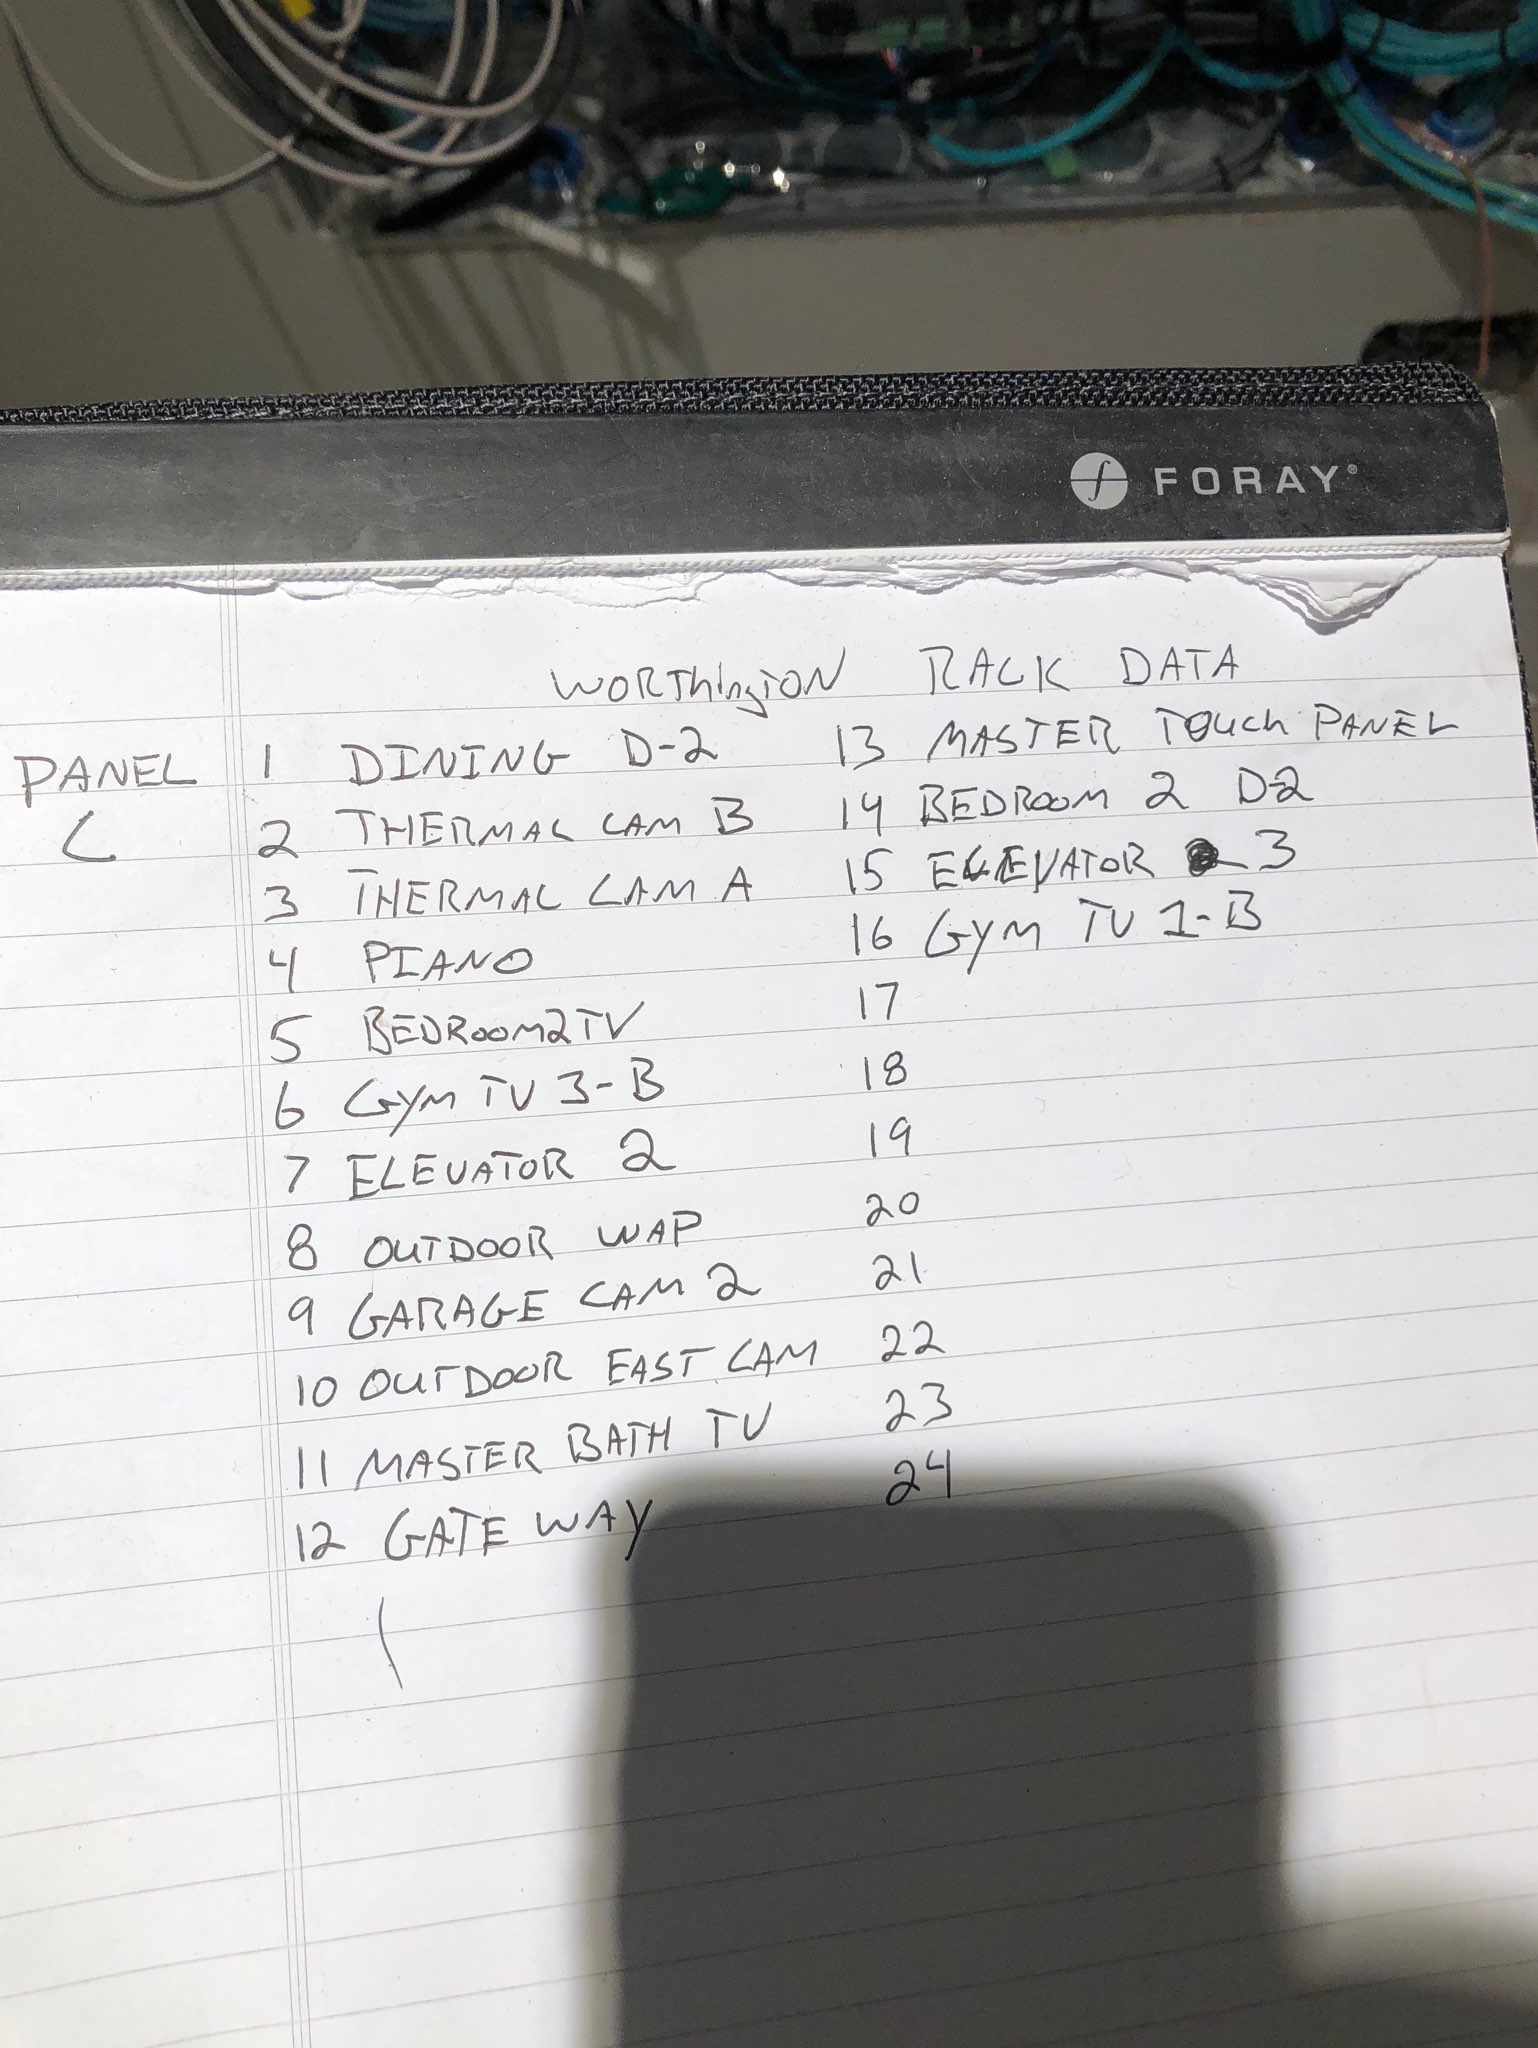 FORAY®
WORThingTON RACK DATA
PANEL C
1 DINING D-2
2 THERMAL CAM B
3 THERMAL CAM A
4 PIANO
5 BEDROOM2TV
6 GYM TV 3-B
7 ELEVATOR 2
8 OUTDOOR WAP
9 GARAGE CAM 2
10 OUTDOOR EAST CAM
11 MASTER BATH TV
12 GATE WAY
13 MASTER TOUCh PANEL
14 BEDROOM 2 D-2
15 ELEVATOR 3
16 GYM TV 1-B
17
18
19
20
21
22
23
24